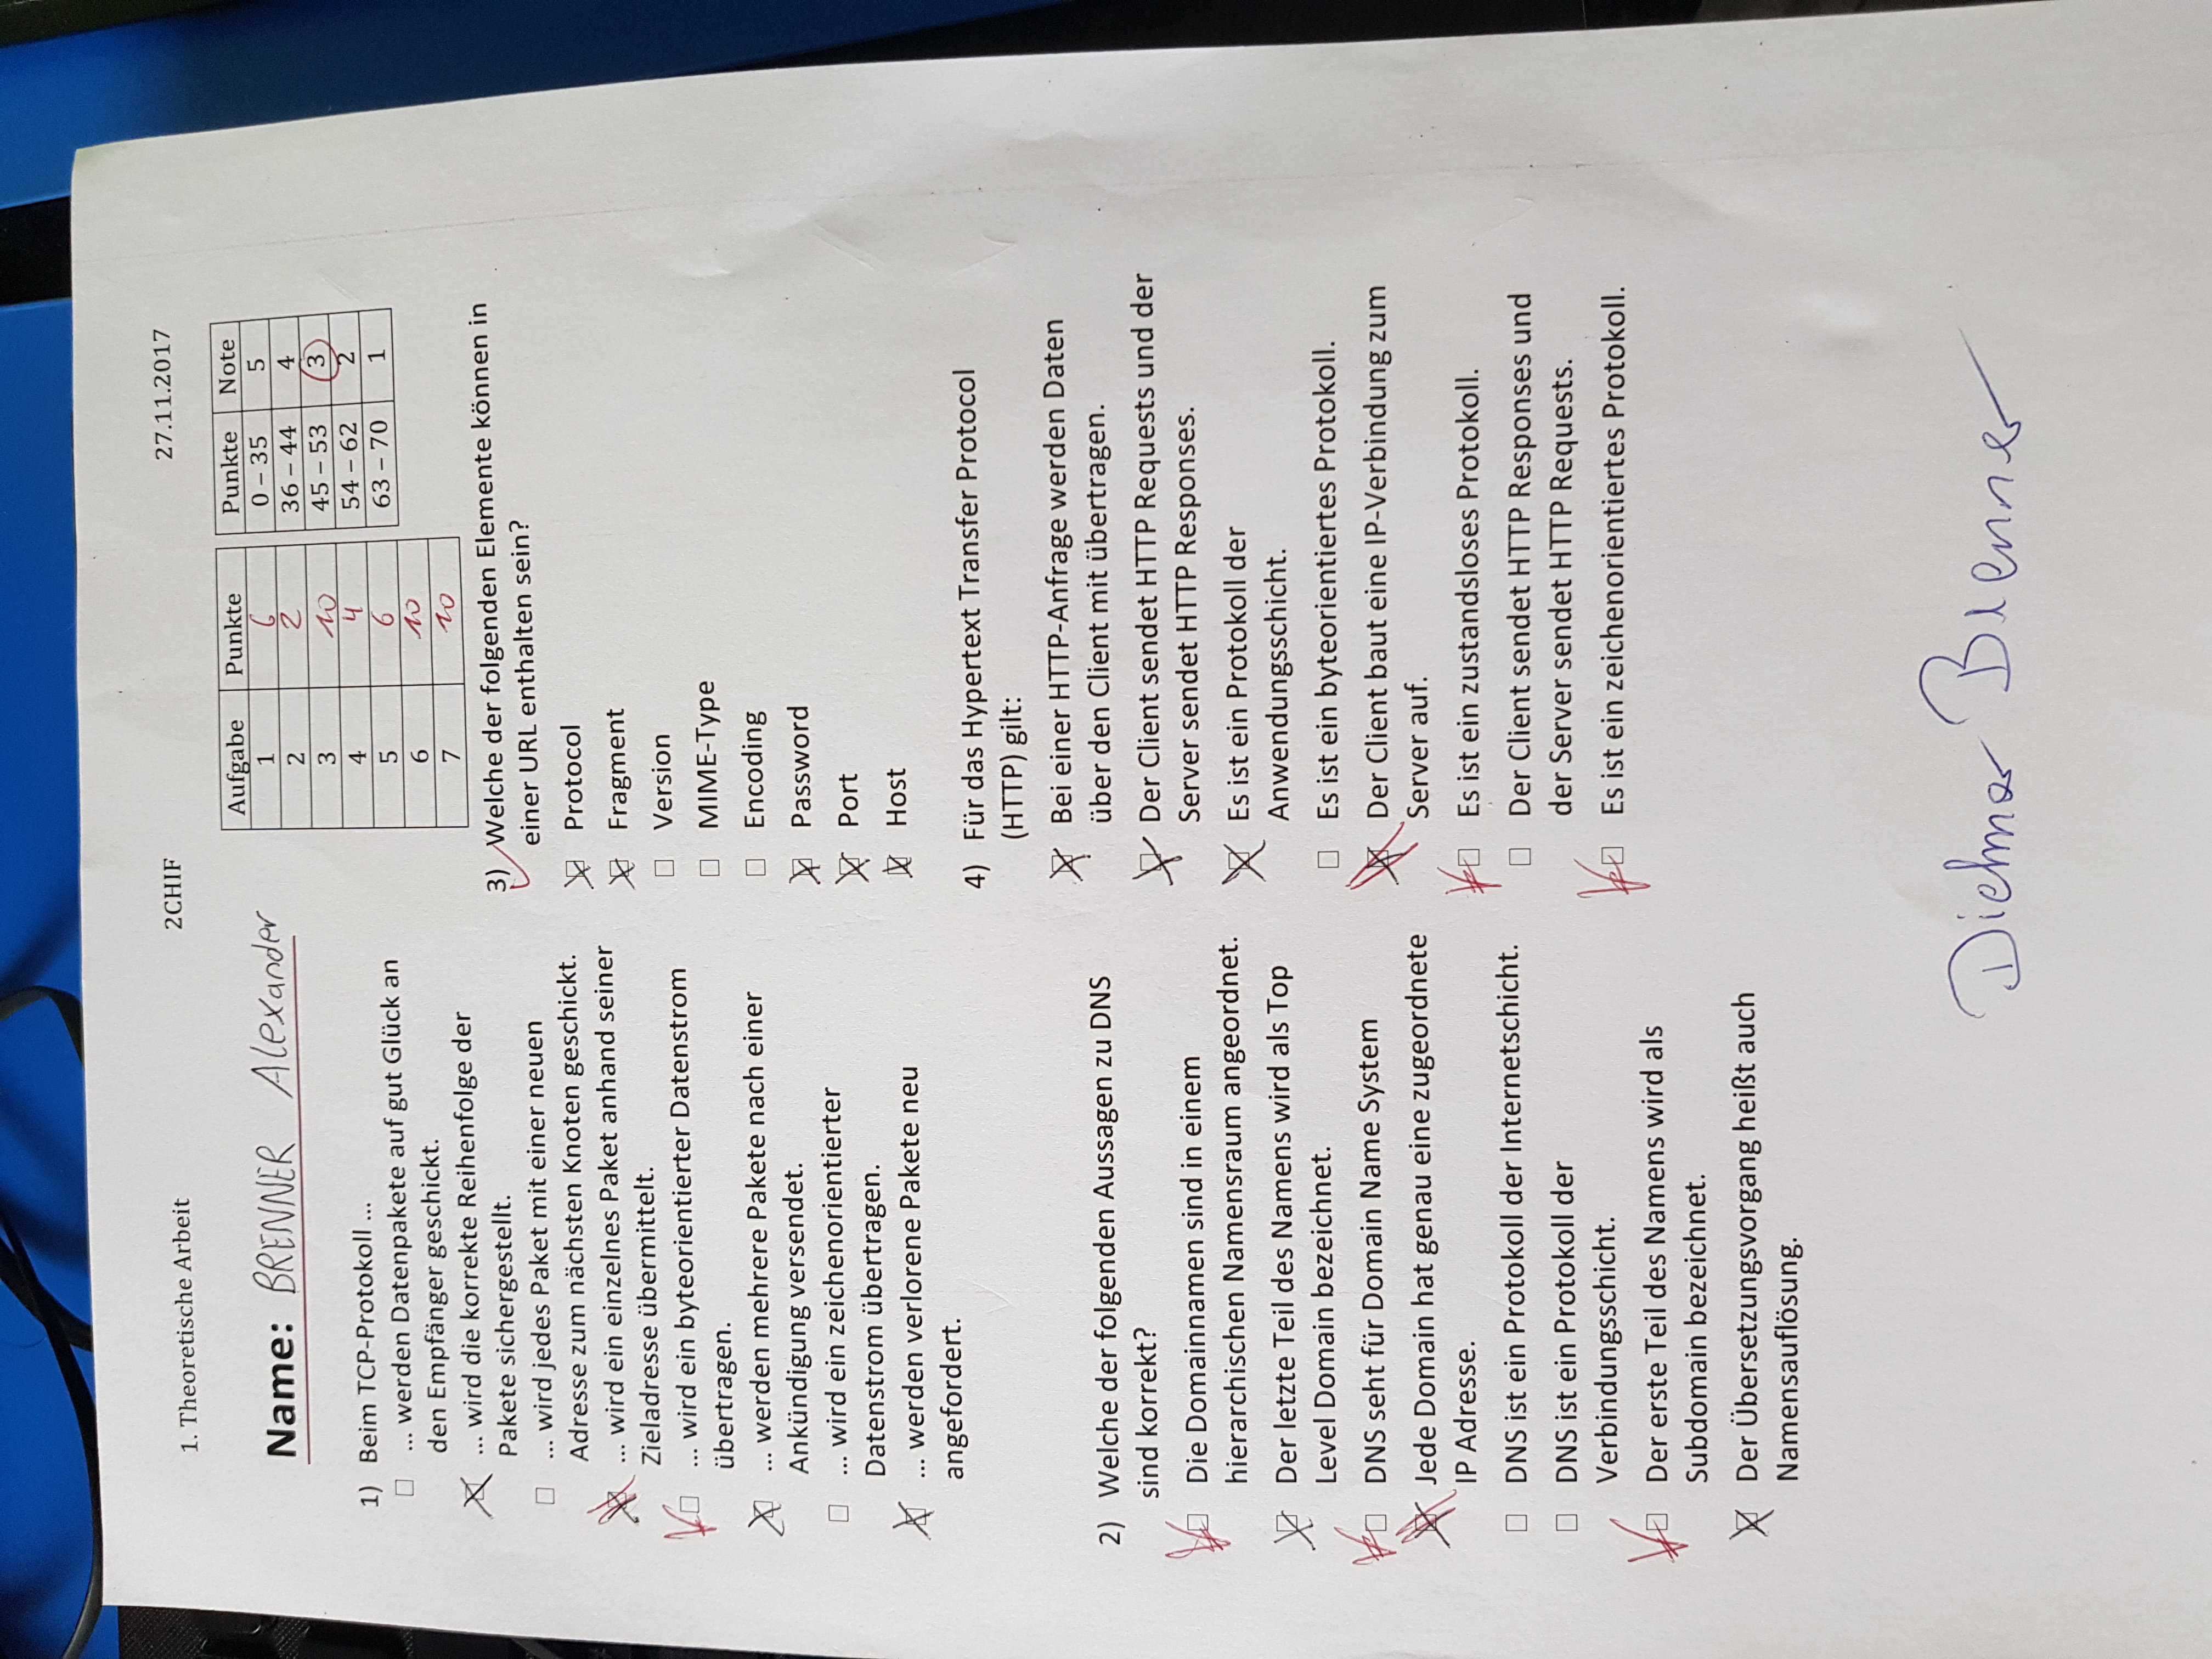 1. Theoretische Arbeit 2CHIF 27.11.2017
Name: BRENNER Alexander
Aufgabe Punkte
1 6
2 2
3 10
4 4
5 6
6 10
7 10
Punkte Note
0 – 35 5
36 – 44 4
45 – 53 3
54 – 62 2
63 – 70 1
1) Beim TCP-Protokoll ...
... werden Datenpakete auf gut Glück an
den Empfänger geschickt.
... wird die korrekte Reihenfolge der
Pakete sichergestellt.
... wird jedes Paket mit einer neuen
Adresse zum nächsten Knoten geschickt.
... wird ein einzelnes Paket anhand seiner
Zieladresse übermittelt.
... wird ein byteorientierter Datenstrom
übertragen.
... werden mehrere Pakete nach einer
Ankündigung versendet.
... wird ein zeichenorientierter
Datenstrom übertragen.
... werden verlorene Pakete neu
angefordert.
2) Welche der folgenden Aussagen zu DNS
sind korrekt?
Die Domainnamen sind in einem
hierarchischen Namensraum angeordnet.
Der letzte Teil des Namens wird als Top
Level Domain bezeichnet.
DNS seht für Domain Name System
Jede Domain hat genau eine zugeordnete
IP Adresse.
DNS ist ein Protokoll der Internetschicht.
DNS ist ein Protokoll der
Verbindungsschicht.
Der erste Teil des Namens wird als
Subdomain bezeichnet.
Der Übersetzungsvorgang heißt auch
Namensauflösung.
3) Welche der folgenden Elemente können in
einer URL enthalten sein?
Protocol
Fragment
Version
MIME-Type
Encoding
Password
Port
Host
4) Für das Hypertext Transfer Protocol
(HTTP) gilt:
Bei einer HTTP-Anfrage werden Daten
über den Client mit übertragen.
Der Client sendet HTTP Requests und der
Server sendet HTTP Responses.
Es ist ein Protokoll der
Anwendungsschicht.
Es ist ein byteorientiertes Protokoll.
Der Client baut eine IP-Verbindung zum
Server auf.
Es ist ein zustandsloses Protokoll.
Der Client sendet HTTP Responses und
der Server sendet HTTP Requests.
Es ist ein zeichenorientiertes Protokoll.
Dietmar Brenner